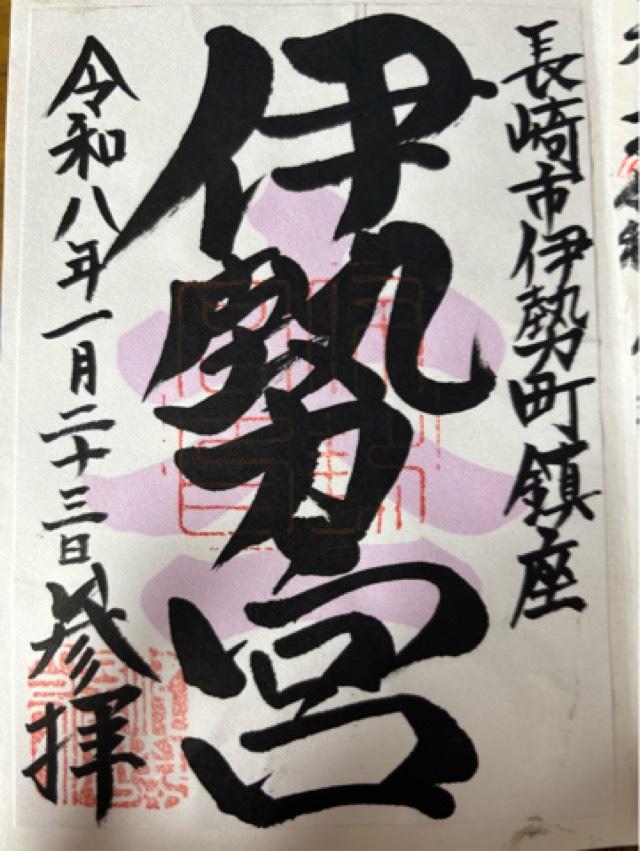 長崎市伊勢町鎮座
伊勢宮
令和八年一月二十三日参拝